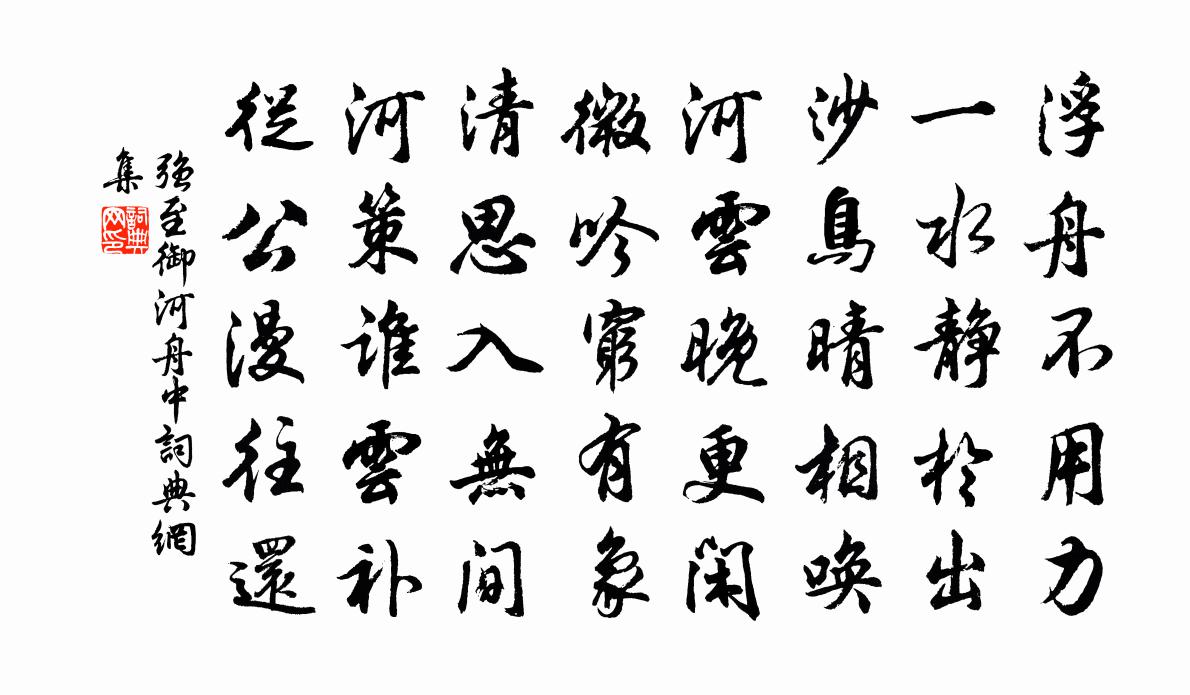 浮舟不用力
一水静於出
沙鳥晴相唤
河雲晚更閑
微吟窮有象
清思入無間
河策誰雲补
從公漫往還
强至御河舟中詞典網
集
詞典
网印